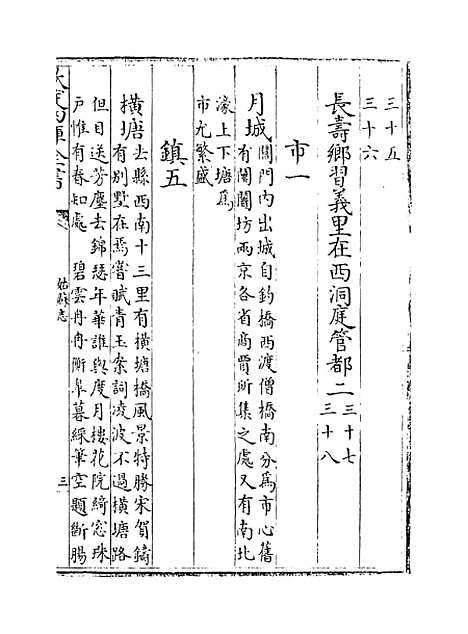 三十五
三十六
長壽鄉習義里在西洞庭管都二三十七
三十八
市一
月城閶門內出城自釣橋西渡僧橋南分爲市心舊
有闤闠坊兩京各省商賈所集之處又有南北
濠上下塘爲
市尤繁盛
鎮五
橫塘去縣西南十三里有橫塘橋風景特勝宋賀鑄
有別墅在焉嘗賦青玉案詞凌波不過橫塘路
但目送芳塵去錦瑟年華誰與度月樓花院綺窓珠
户惟有春知處　碧雲冉冉蘅臯暮綵筆空題斷腸
欽定四庫全書
姑蘇志
三